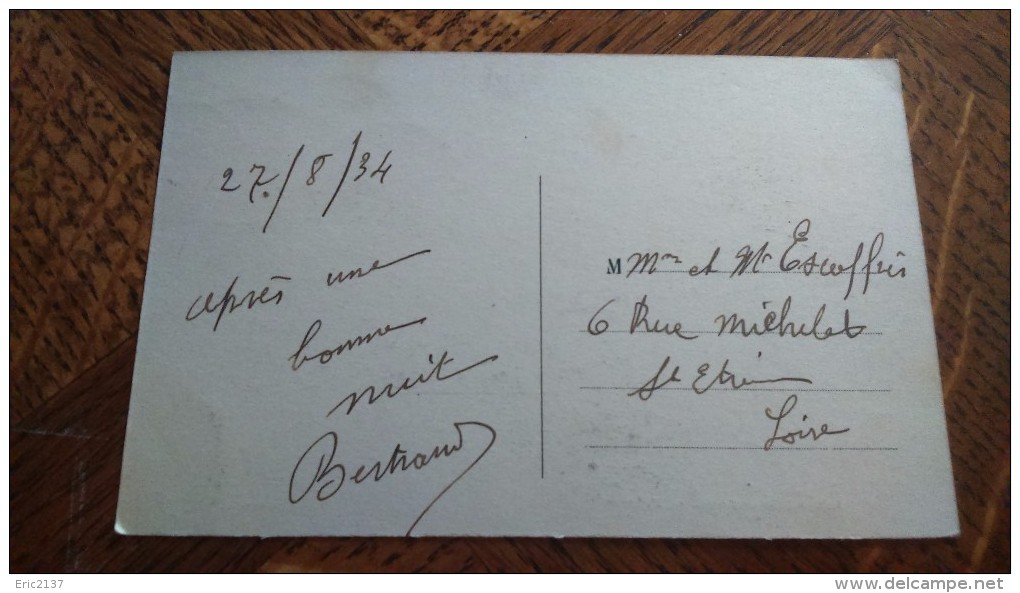 27./8/34
après une
bonne
nuit
Bertrand
M Mme et Mr Escoffier
6 Rue Michelet
St Etienne
Loire
Eric2137
www.delcampe.net